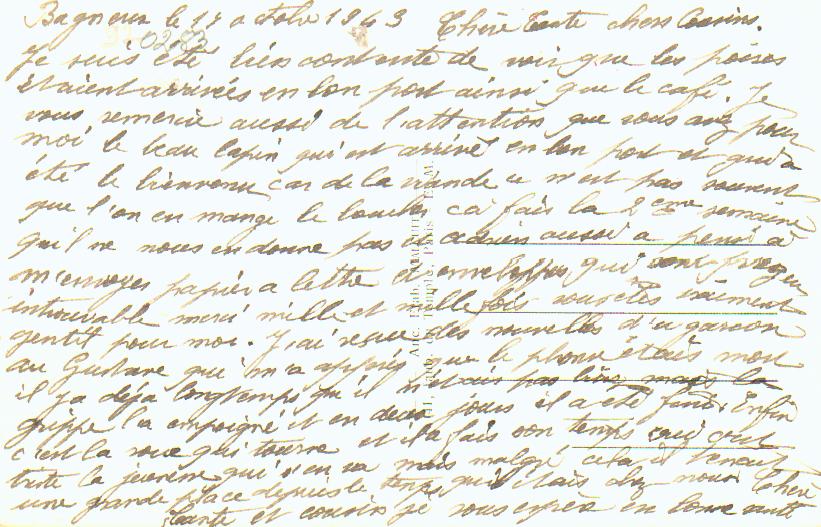 Bagneux le 17 octobre 1943 Chère Tante chers Cousins.
02:83
Je suis été bien contente de voir que les poires
étaient arrivées en bon port ainsi que le café. Je
vous remercie aussi de l'attention que vous avez pour
moi le beau lapin qui est arrivé en bon port et qui a
été le bienvenu car de la viande ce n'est pas souvent
que l'on en mange le boucher ça fais la 2 eme semaine
qu'il ne nous en donne pas et aussi a pensé à
m'envoyer papier a lettre et enveloppes qui sont presque
introuvable merci mille et mille fois vous êtes vraiment
gentil pour moi. J'ai reçue des nouvelles d'
au Gustave qui m'a appris que le était mort
il y a déja longtemps qu'il n'étais pas bien mais la
grippe l'a empoigné et en deux jours il a été fini. Enfin
c'est la roue qui tourne et il a fais son temps
triste la jeunesse qui s'en va mais malgré cela il tenait
une grande place depuis le temps qu'il étais chez nous Chère
tante et cousins je vous espère en bonne santé